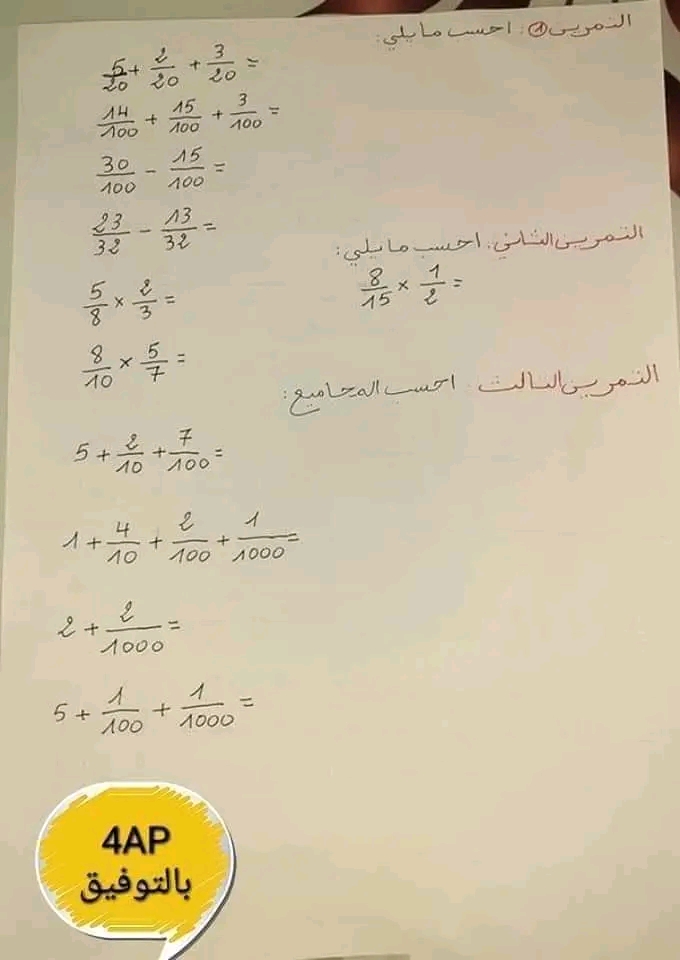 التمرين ①: احسب ما يلي:
5/20 + 2/20 + 3/20 =
14/100 + 15/100 + 3/100 =
30/100 - 15/100 =
23/32 - 13/32 =
التمرين الثاني: احسب ما يلي:
5/8 × 2/3 =
8/15 × 1/2 =
8/10 × 5/7 =
التمرين الثالث: احسب المجاميع:
5 + 2/10 + 7/100 =
1 + 4/10 + 2/100 + 1/1000 =
2 + 2/1000 =
5 + 1/100 + 1/1000 =
4AP
بالتوفيق